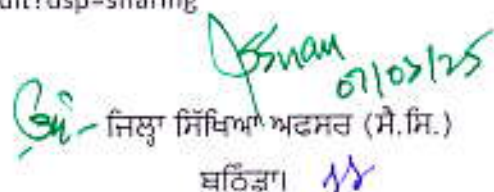 dit?usp=sharing
07/03/25
ਉਪ - ਜਿਲ੍ਹਾ ਸਿੱਖਿਆ ਅਫਸਰ (ਸੈ.ਸਿ.)
ਬਠਿੰਡਾ।